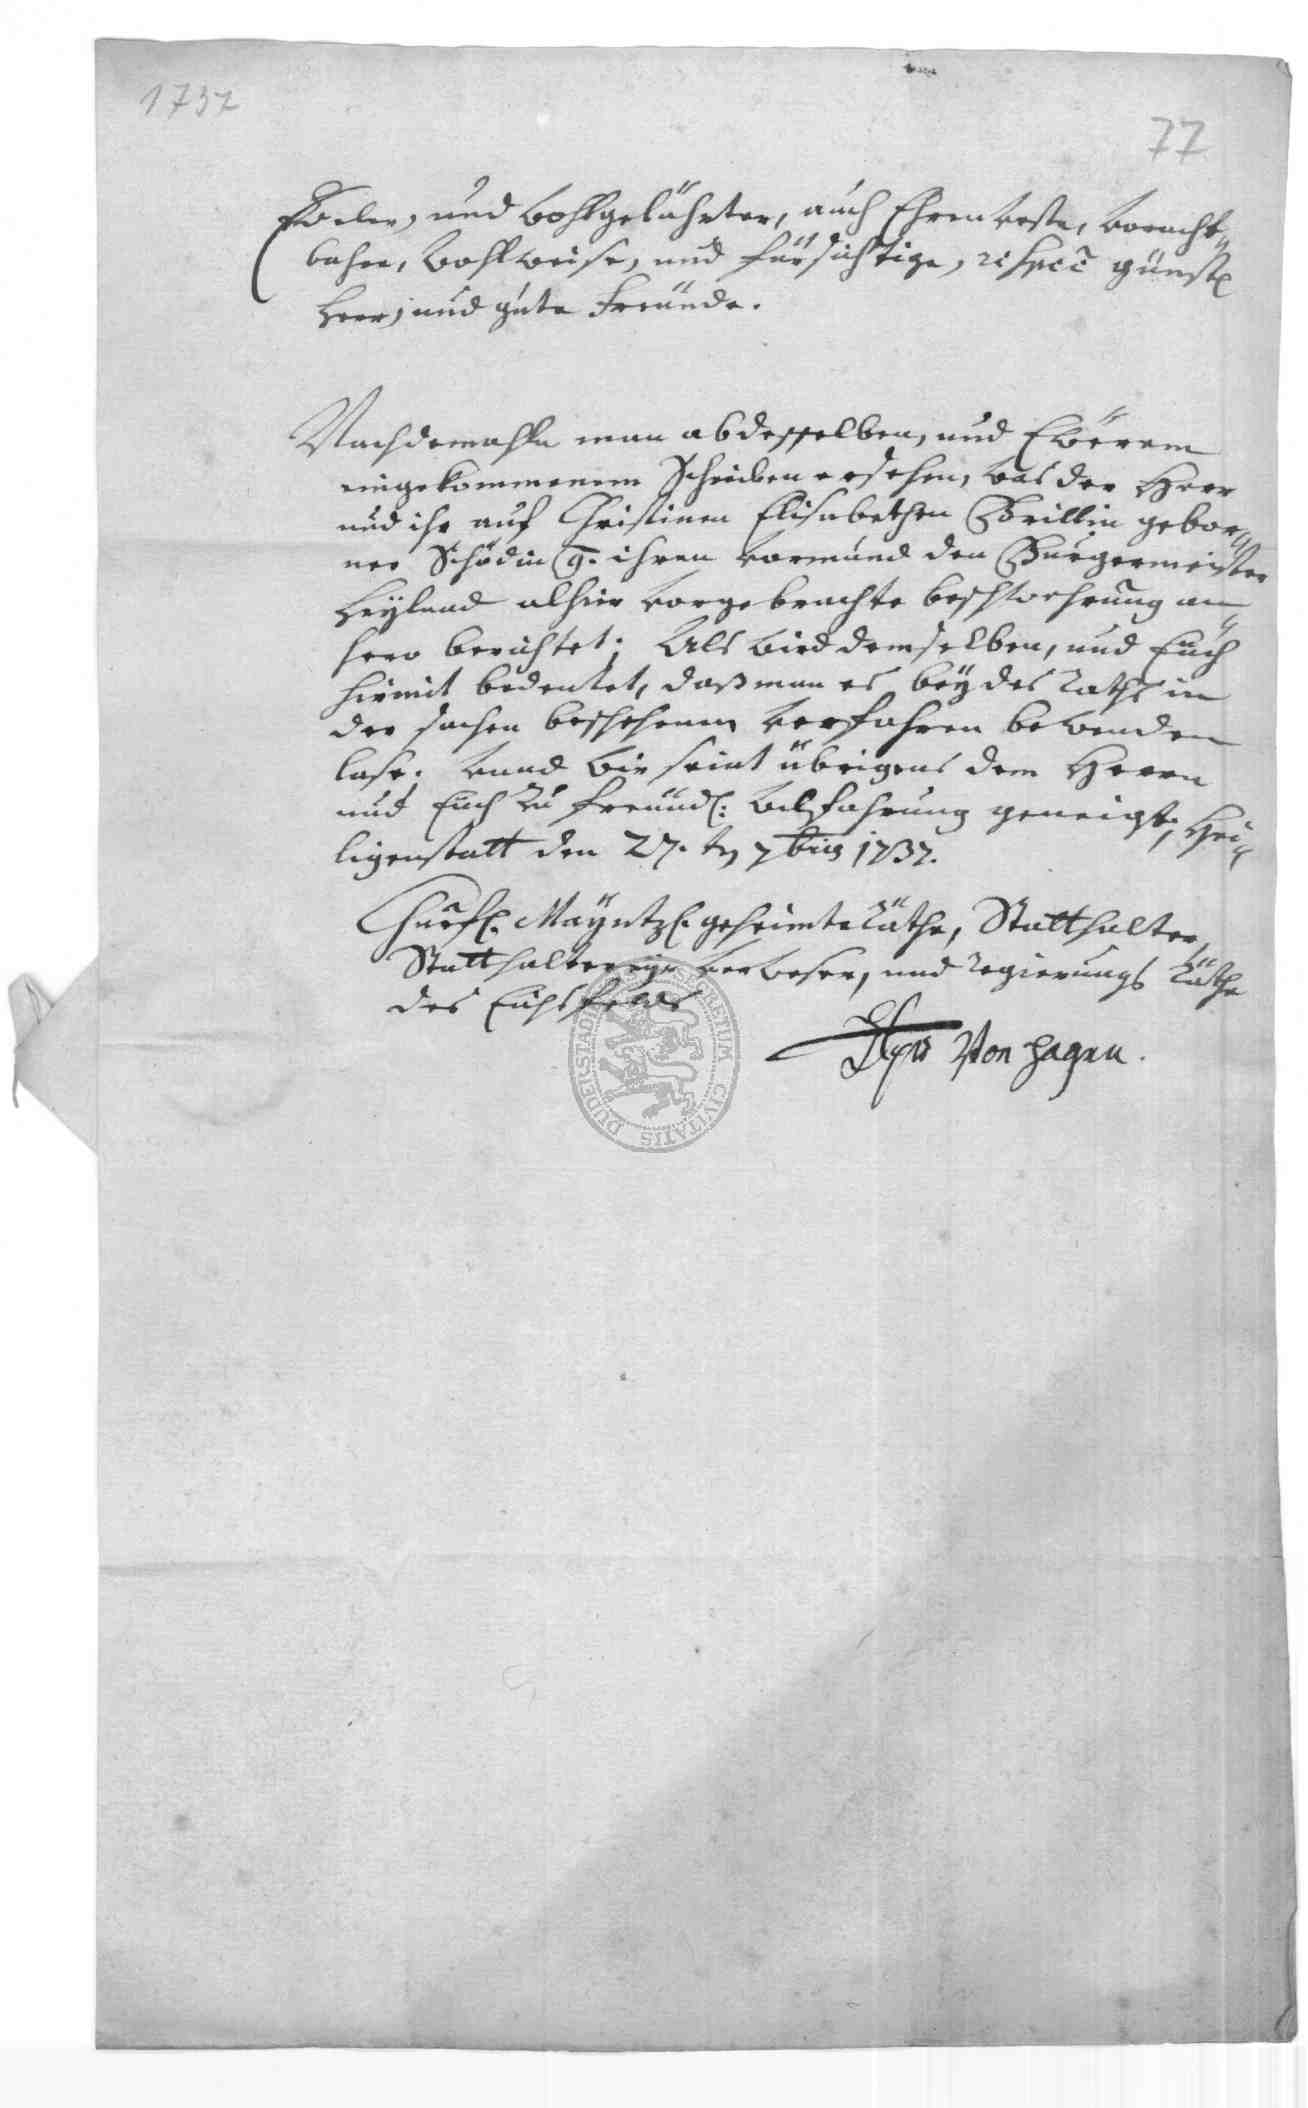 1737
77
Edler, und Wohlgelährter, auch Ehrenveste, Voracht¬
bahre, Wohlweise, und fürsichtige, respec günstl
Herr, und gute Freünde.
Nachdemahln man abdesselben, und Ewerem
eingekommenem Schreiben ersehen, was der Herr
und ihr auf Christinen Elisabethen Brillin gebor¬
ner Schödin g. ihren Vormund den Burgermeister
Weyland alhier vorgebrachte beschwehrung an¬
hero berichtet; Als wird demselben, und Euch
hiemit bedeutet, daß man es beÿ des Raths in
der sachen beschehenem verfahren bewenden
lase. Unnd wir seint übrigens dem Herrn
und Euch zu freundl: willfahrung geneigt, Hei¬
ligenstatt den 27. 7bris 1737.
Churfl. Mayntzl. geheimte Räthe, Statthalter,
Statthaltereÿ Verweser, und regierungs Räthe
des Eichsfelds
Von Hagen.
SECRETUM CIVITATIS DUDERSTADIE